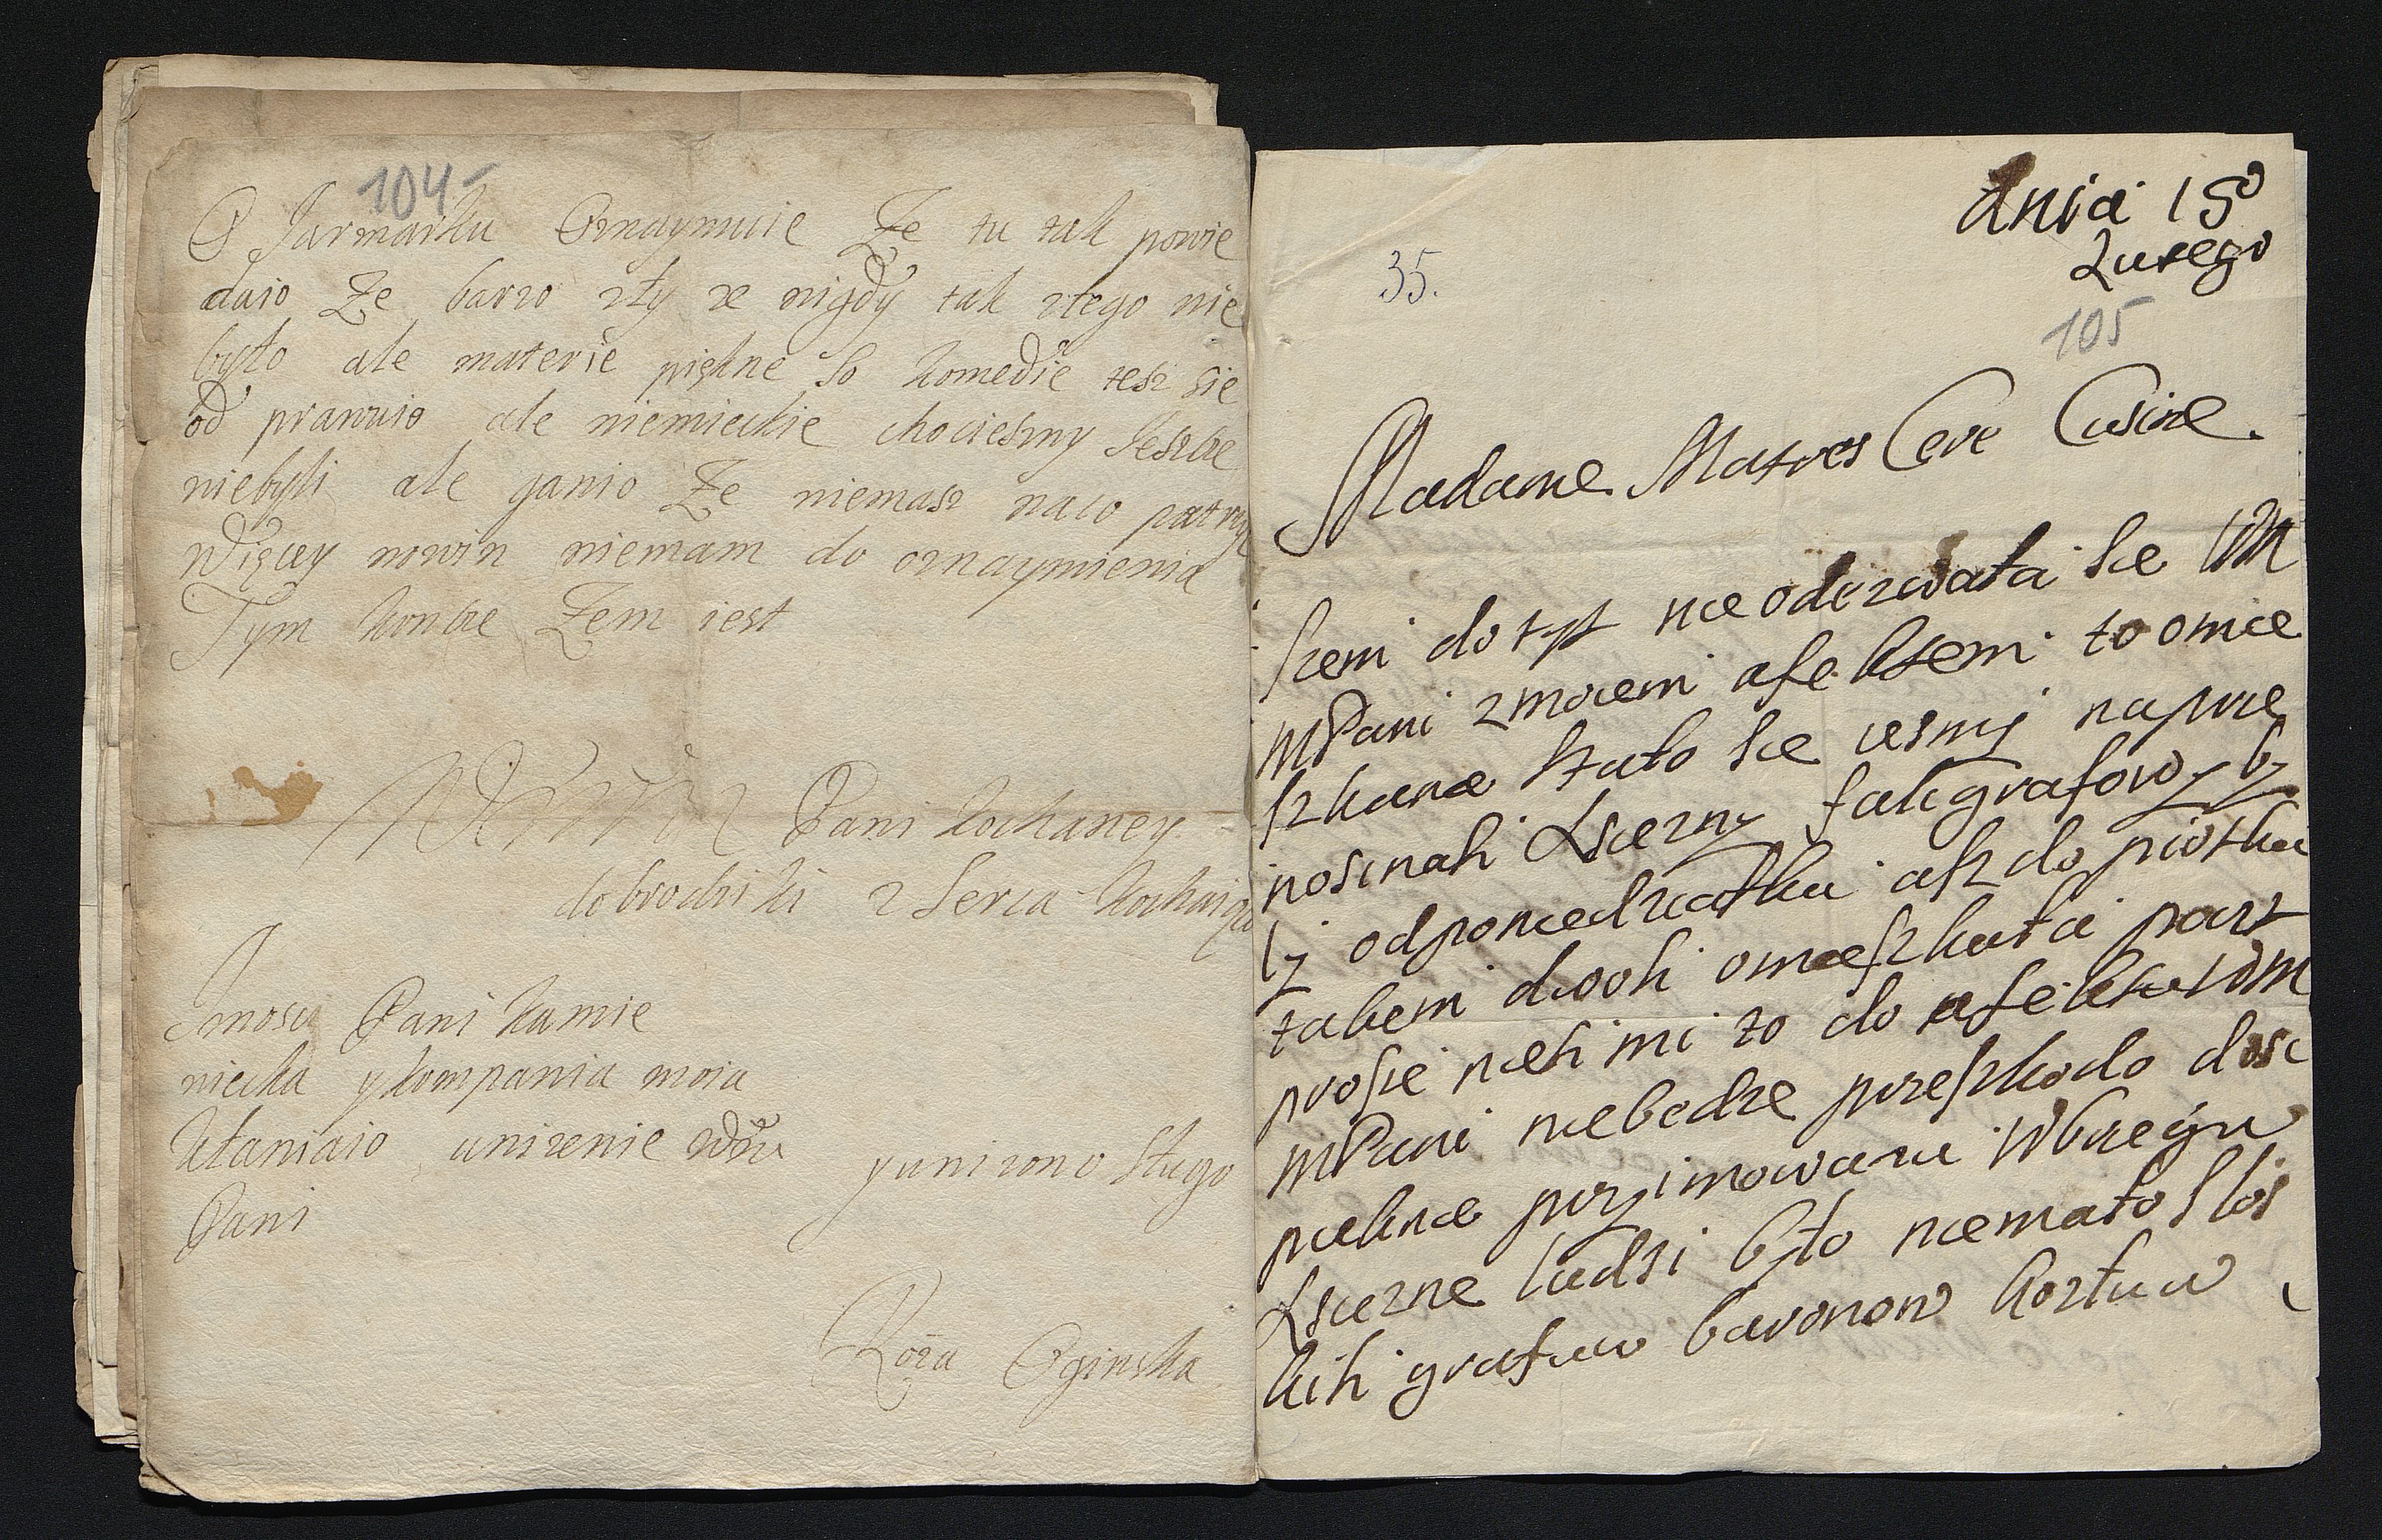 104
O Jarmarku Oznaymuie Ze tu tak powie
daio Ze barzo zły ze nigdy tak złego nie
było ale materie piękne So komedie tesz sie
od prawuio ale niemieckie chociesmy Jescze
niebyli ale ganio Ze niemasz naco patrzyc
Więcey nowin niemam do oznaymienia
Tym koncze Zem iest
Pani kochaney
dobrodziki z Serca kochaiąca
Jmosci Pani kamie
niecka y kompania moia
kłaniaio unizenie
Pani
y unizono Sługo
Roza Oginska
dnia 15o
Lutego
35.
105
Madame Matres Cere Cusine.
zem do tyt nieoderwała sie WM
MPani zmoiem afektem to omie
szkanie Stało sie iesmy napize
nosinah Lserny Fahgrafowy b
ly odponiedziałku asz do piotku
takem dwoh omieszkała part
prosie nieh mi to do afektu WM
MPani niebedze przeszkodo dosc
piekne przyimowanie Wbriegu
Lserne ludzi było niemało Slos
kih grafuw baronow kortuw